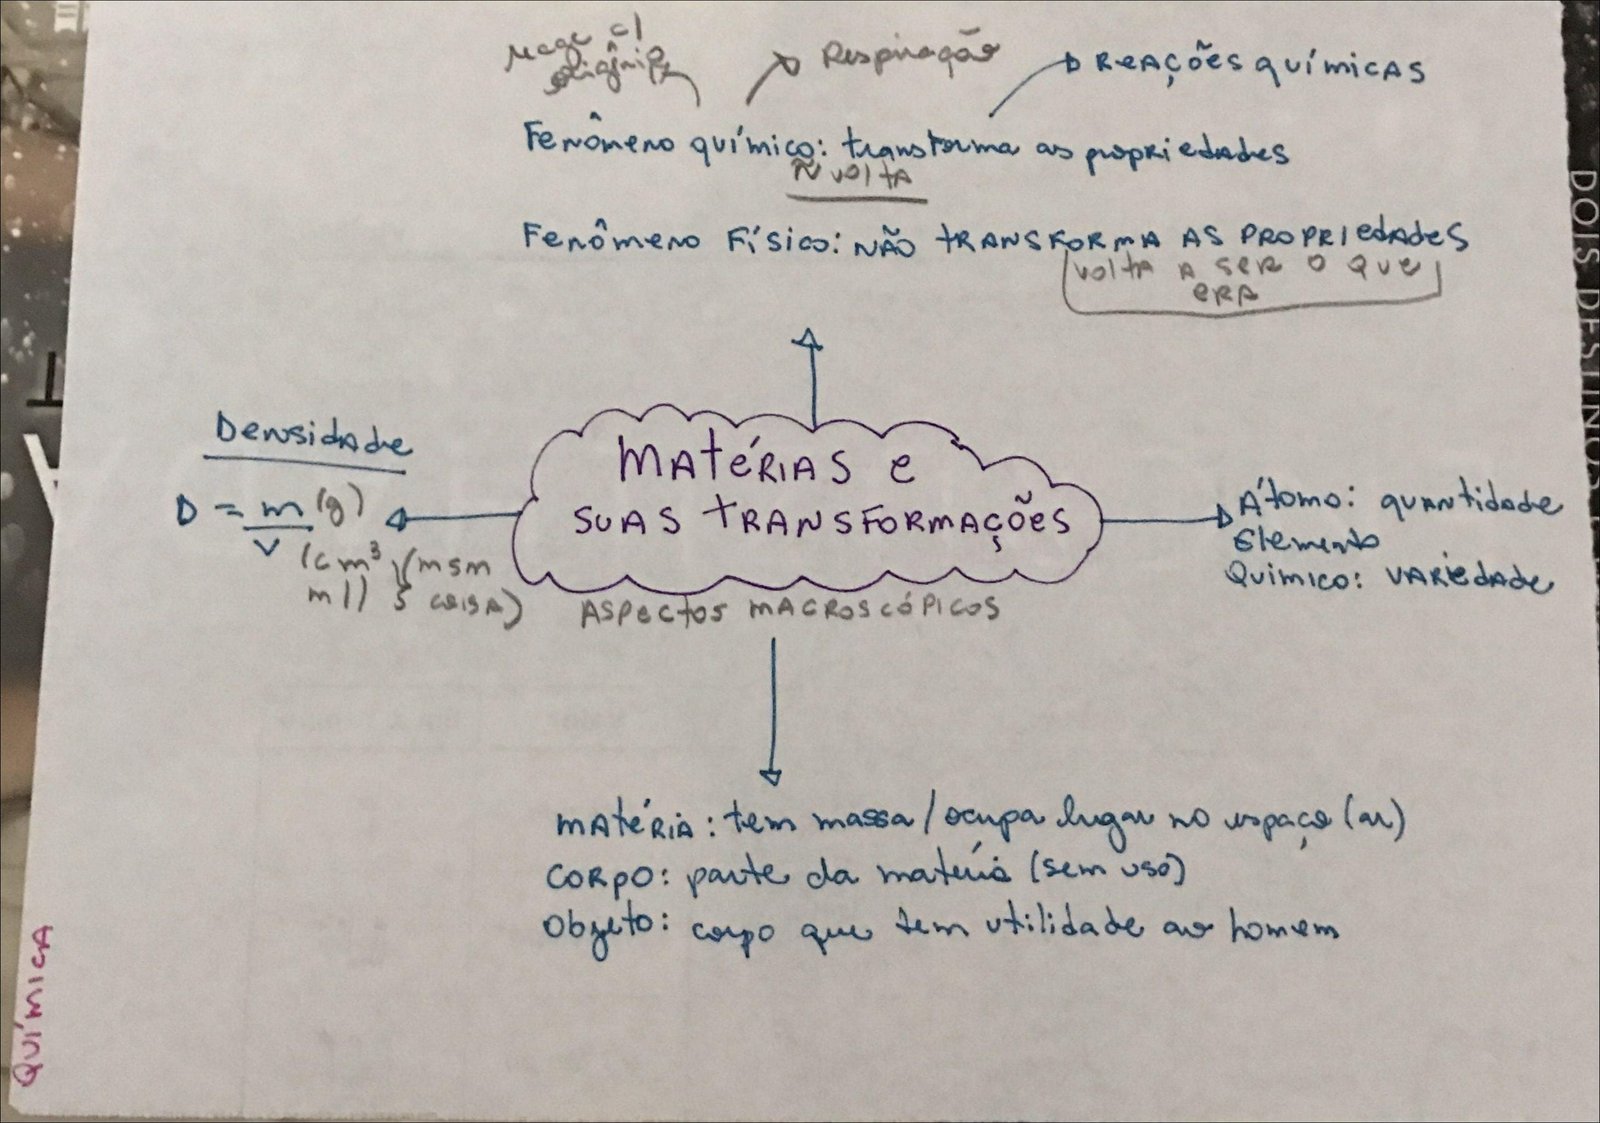 reage c/
oxigênio
Respiração
Reações químicas
Fenômeno químico: transforma as propriedades
ñ volta
Fenômeno Físico: não transforma as propriedades
volta a ser o que
era
Densidade
D = m (g)
V
(cm³ (msm
ml) coisa)
Matérias e
suas transformações
Aspectos macroscópicos
Átomo: quantidade
Elemento
Químico: variedade
matéria: tem massa/ocupa lugar no espaço (ar)
Corpo: parte da matéria (sem uso)
Objeto: corpo que tem utilidade ao homem
Química
DOIS DESTINOS